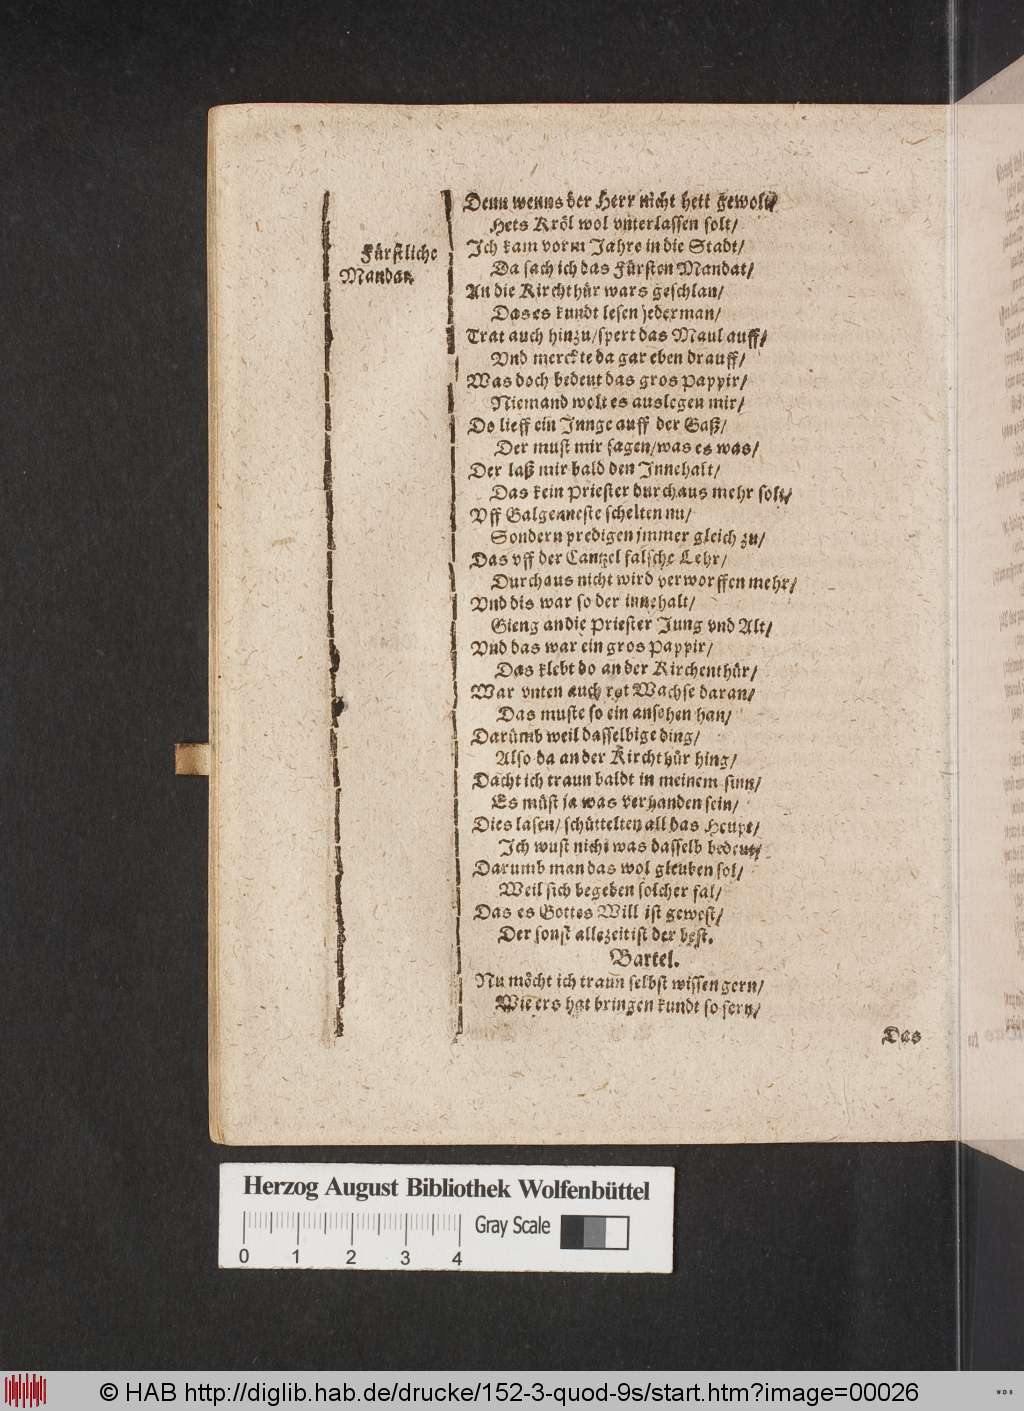 Fürstliche
Mandat.
Denn wenns der Herr nicht hett gewolt/
Hets Kröl wol vnterlassen solt/
Ich kam vorm Jahre in die Stadt/
Da sach ich das Fürsten Mandat/
An die Kirchthür wars geschlan/
Das es kundt lesen jederman/
Trat auch hinzu/spert das Maul auff/
Vnd merckte da gar eben drauff/
Was doch bedeut das gros Pappir/
Niemand wolt es auslegen mir/
Do lieff ein Junge auff der Gaß/
Der must mir sagen/was es was/
Der laß mir bald den Innehalt/
Das kein Priester durchaus mehr solt/
Vff Galgenneste schelten nu/
Sondern predigen jmmer gleich zu/
Das vff der Cantzel falsche Lehr/
Durchaus nicht wird verworffen mehr/
Vnd dis war so der innehalt/
Gieng an die Priester Jung vnd Alt/
Vnd das war ein gros Pappir/
Das klebt do an der Kirchenthür/
War vnten auch rot Wachse daran/
Das muste so ein ansehen han/
Darümb weil dasselbige ding/
Also da an der Kirchthür hing/
Dacht ich traun baldt in meinem sinn/
Es müst ja was verhanden sein/
Dies lasen/ schüttelten all das Heupt/
Ich wust nicht was dasselb bedeut/
Darumb man das wol gleuben sol/
Weil sich begeben solcher fal/
Das es Gottes Will ist gewest/
Der sonst allezeit ist der best.
Bartel.
Nu möcht ich traun selbst wissen gern/
Wie ers hat bringen kundt so fern/
Das
Herzog August Bibliothek Wolfenbüttel
Gray Scale
0 1 2 3 4
© HAB http://diglib.hab.de/drucke/152-3-quod-9s/start.htm?image=00026